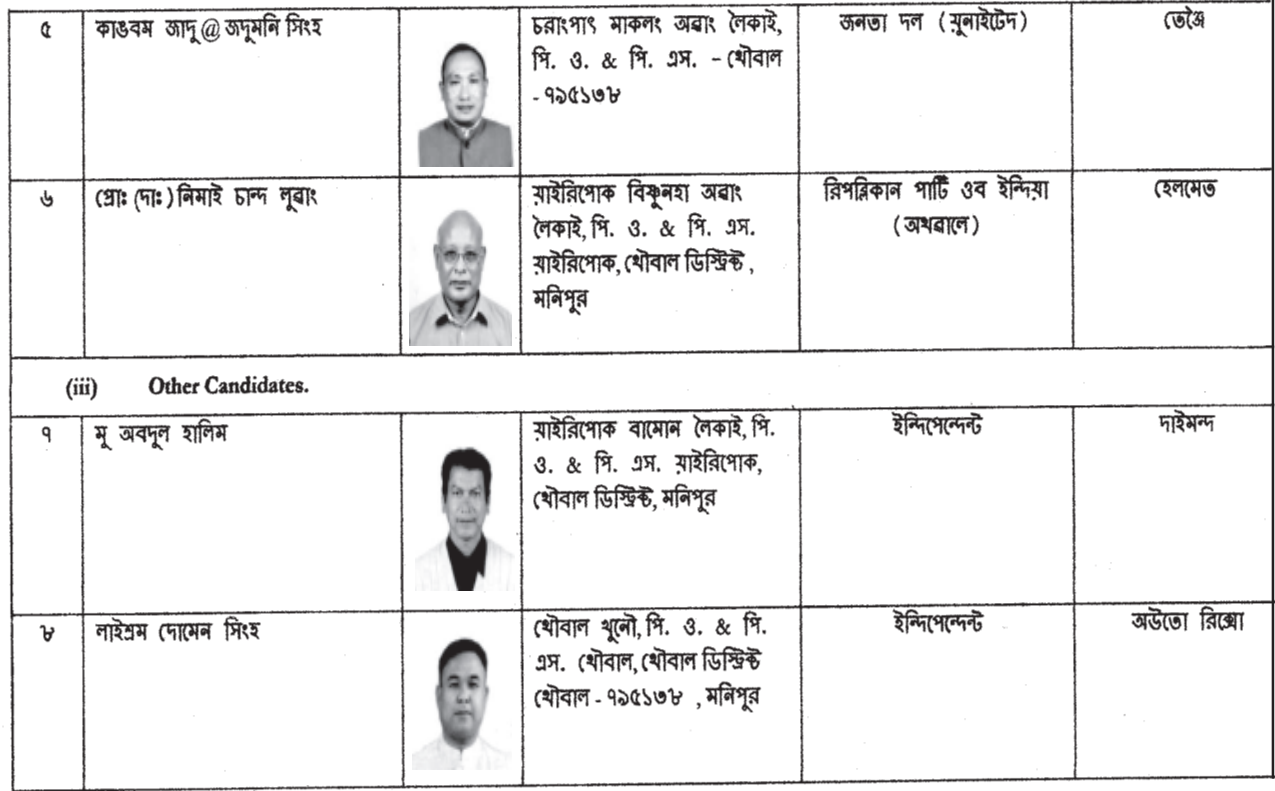 ৫
কাঙবম জাদু @ জদুমনি সিংহ
চরাংপাৎ মাকলং অৱাং লৈকাই,
পি. ও. & পি. এস. – থৌবাল
- ৭৯৫১৩৮
জনতা দল (য়ুনাইটেদ)
তেঞ্জৈ
৬
(প্রাঃ (দাঃ) নিমাই চান্দ লুৱাং
য়াইরিপোক বিষ্ণুনহা অৱাং
লৈকাই, পি. ও. & পি. এস.
য়াইরিপোক, থৌবাল ডিস্ট্রিক্ট ,
মনিপুর
রিপব্লিকান পার্টি ওব ইন্দিয়া
(অথৱালে)
হেলমেত
(iii) Other Candidates.
৭
মু অবদুল হালিম
য়াইরিপোক বামোন লৈকাই, পি.
ও. & পি. এস. য়াইরিপোক,
থৌবাল ডিস্ট্রিক্ট, মনিপুর
ইন্দিপেন্দেন্ট
দাইমন্দ
৮
লাইশ্রম দোমেন সিংহ
থৌবাল খুনৌ, পি. ও. & পি.
এস. থৌবাল, থৌবাল ডিস্ট্রিক্ট
থৌবাল - ৭৯৫১৩৮ , মনিপুর
ইন্দিপেন্দেন্ট
অউতো রিক্সো